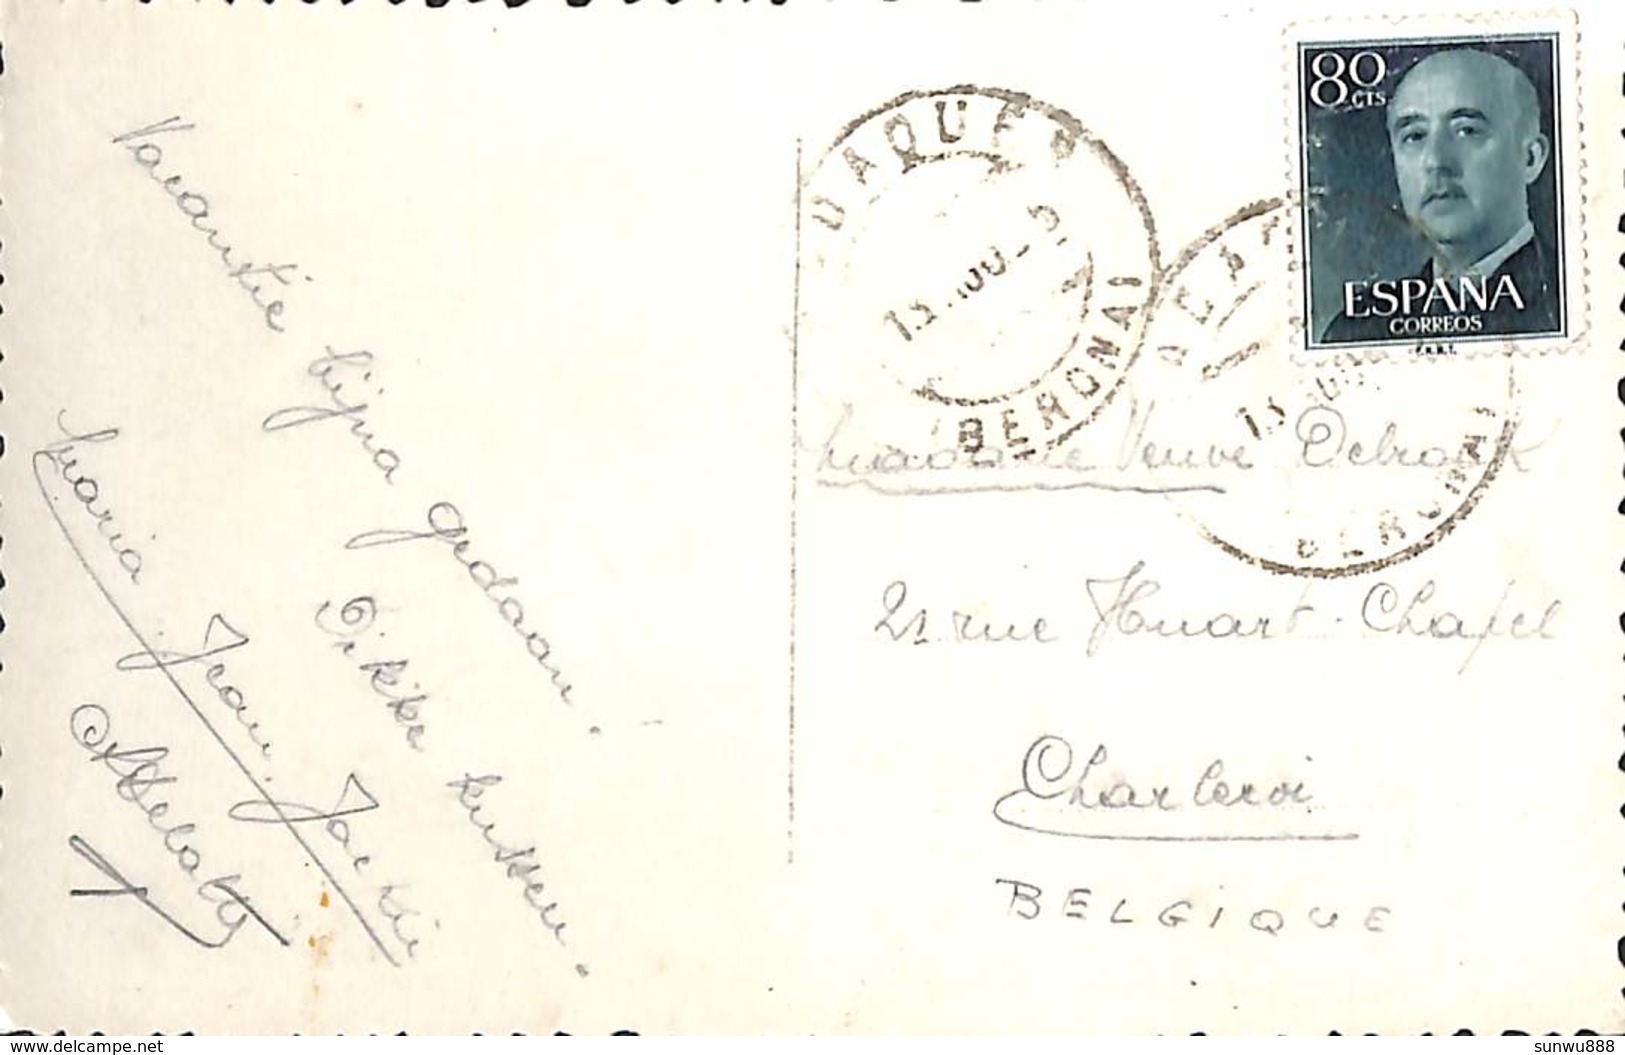 Vacantie bijna gedaan.
Dikke kussen.
Maria Jean. Jacki
80
CTS
ESPAÑA
CORREOS
F.N.M.T.
DAQUES
13 AGO
BERONAI
13
BERONAI
Madame Veuve Debrock
21 rue Huart-Chapel
Charleroi
BELGIQUE
www.delcampe.net
sunwu888